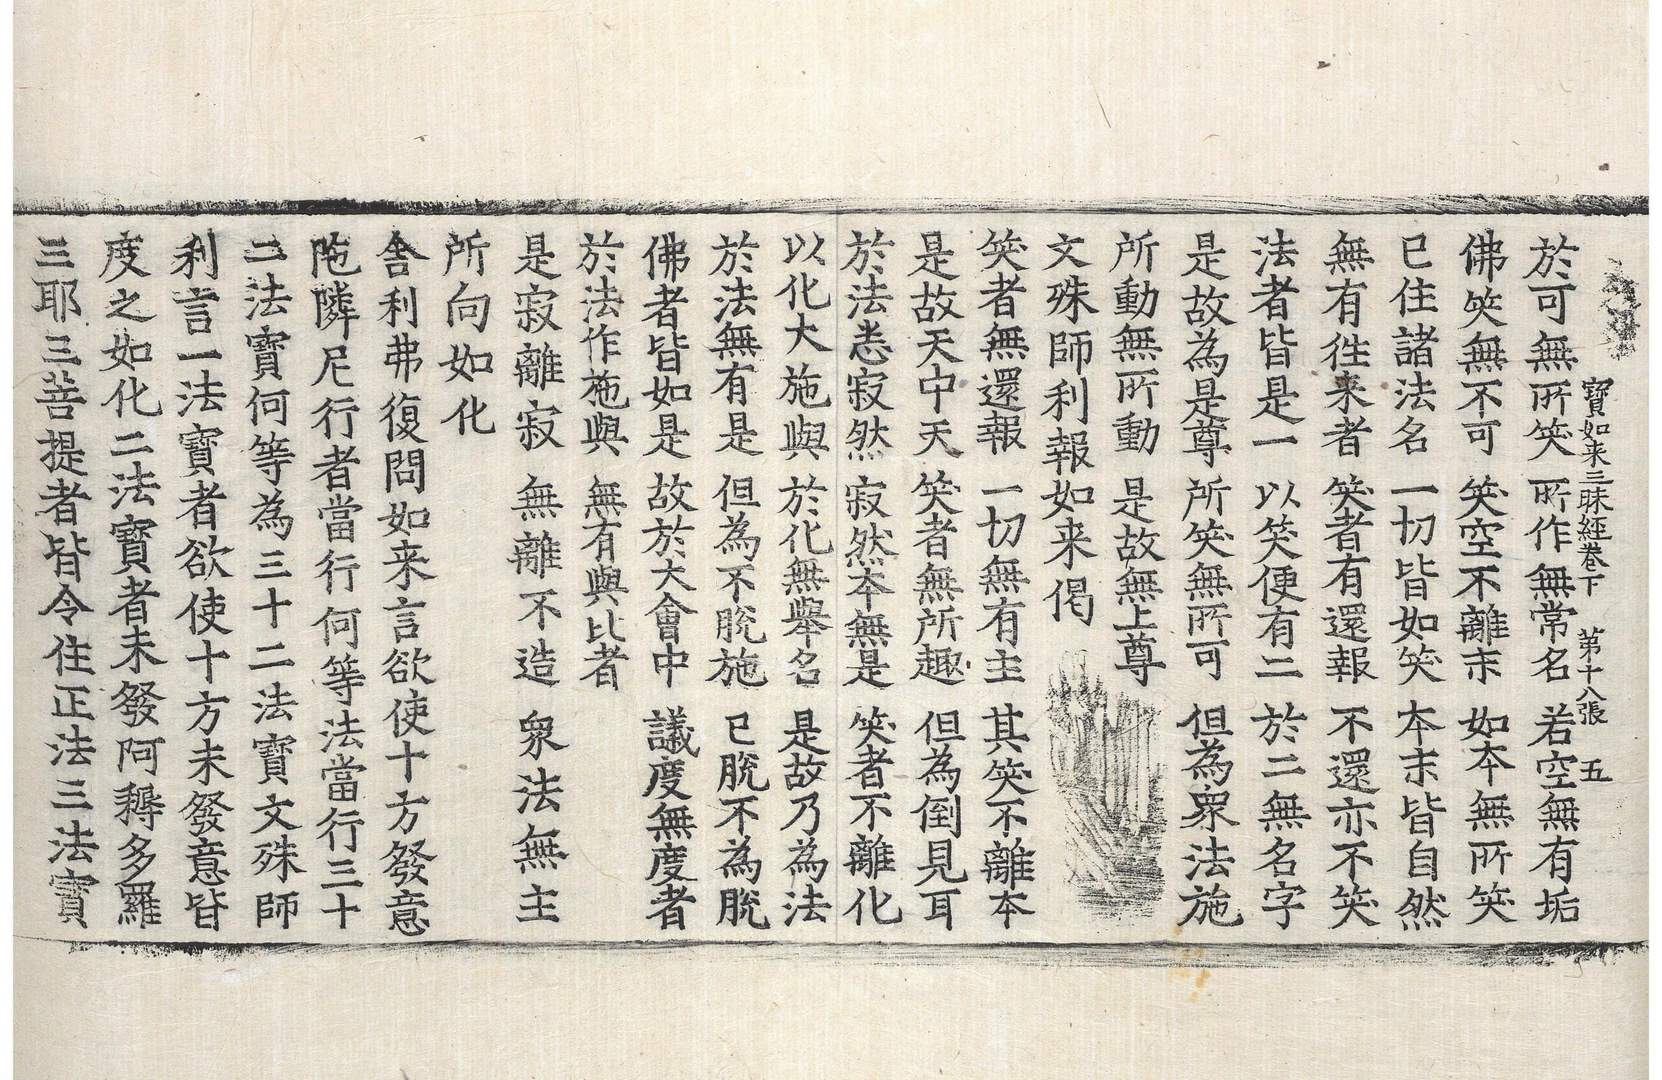 寶如来三昧經卷下 第十八張 五
於可無所笑 所作無常名 若空無有垢
佛笑無不可 笑空不離末 如本無所笑
已住諸法名 一切皆如笑 本末皆自然
無有徃来者 笑者有還報 不還亦不笑
法者皆是一 以笑便有二 於二無名字
是故為是尊 所笑無所可 但為衆法施
所動無所動 是故無上尊
文殊師利報如来偈
笑者無還報 一切無有主 其笑不離本
是故天中天 笑者無所趣 但為倒見耳
於法悉寂然 寂然本無是 笑者不離化
以化大施與 於化無舉名 是故乃為法
於法無有是 但為不脫施 已脫不為脫
佛者皆如是 故於大會中 議度無度者
於法作施與 無有與比者
是寂離寂 無離不造 衆法無主
所向如化
舎利弗復問如来言欲使十方發意
陁隣尼行者當行何等法當行三十
二法寶何等為三十二法寶文殊師
利言一法寶者欲使十方未發意皆
度之如化二法寶者未發阿耨多羅
三耶三菩提者皆令住正法三法寶